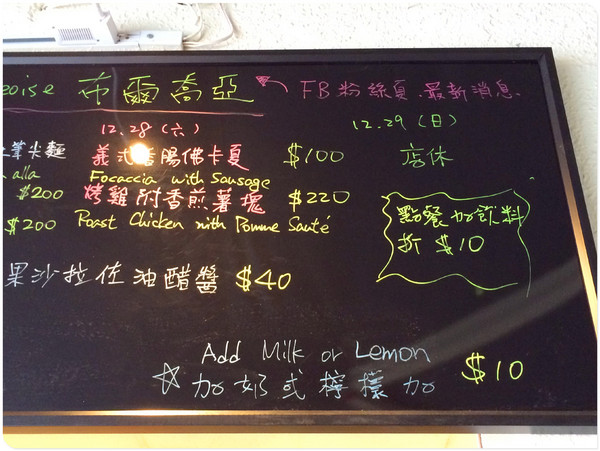 布爾喬亞 FB粉絲頁.最新消息.
12.28(六) 12.29(日)
筆尖麵 義式香腸佛卡夏 $100 店休
alla Focaccia with Sausage
$200 烤雞附香煎薯塊 $220
$200 Roast Chicken with Pomme Sauté
點餐加飲料
折 $10
果沙拉佐油醋醬 $40
Add Milk or Lemon
☆加奶或檸檬加 $10